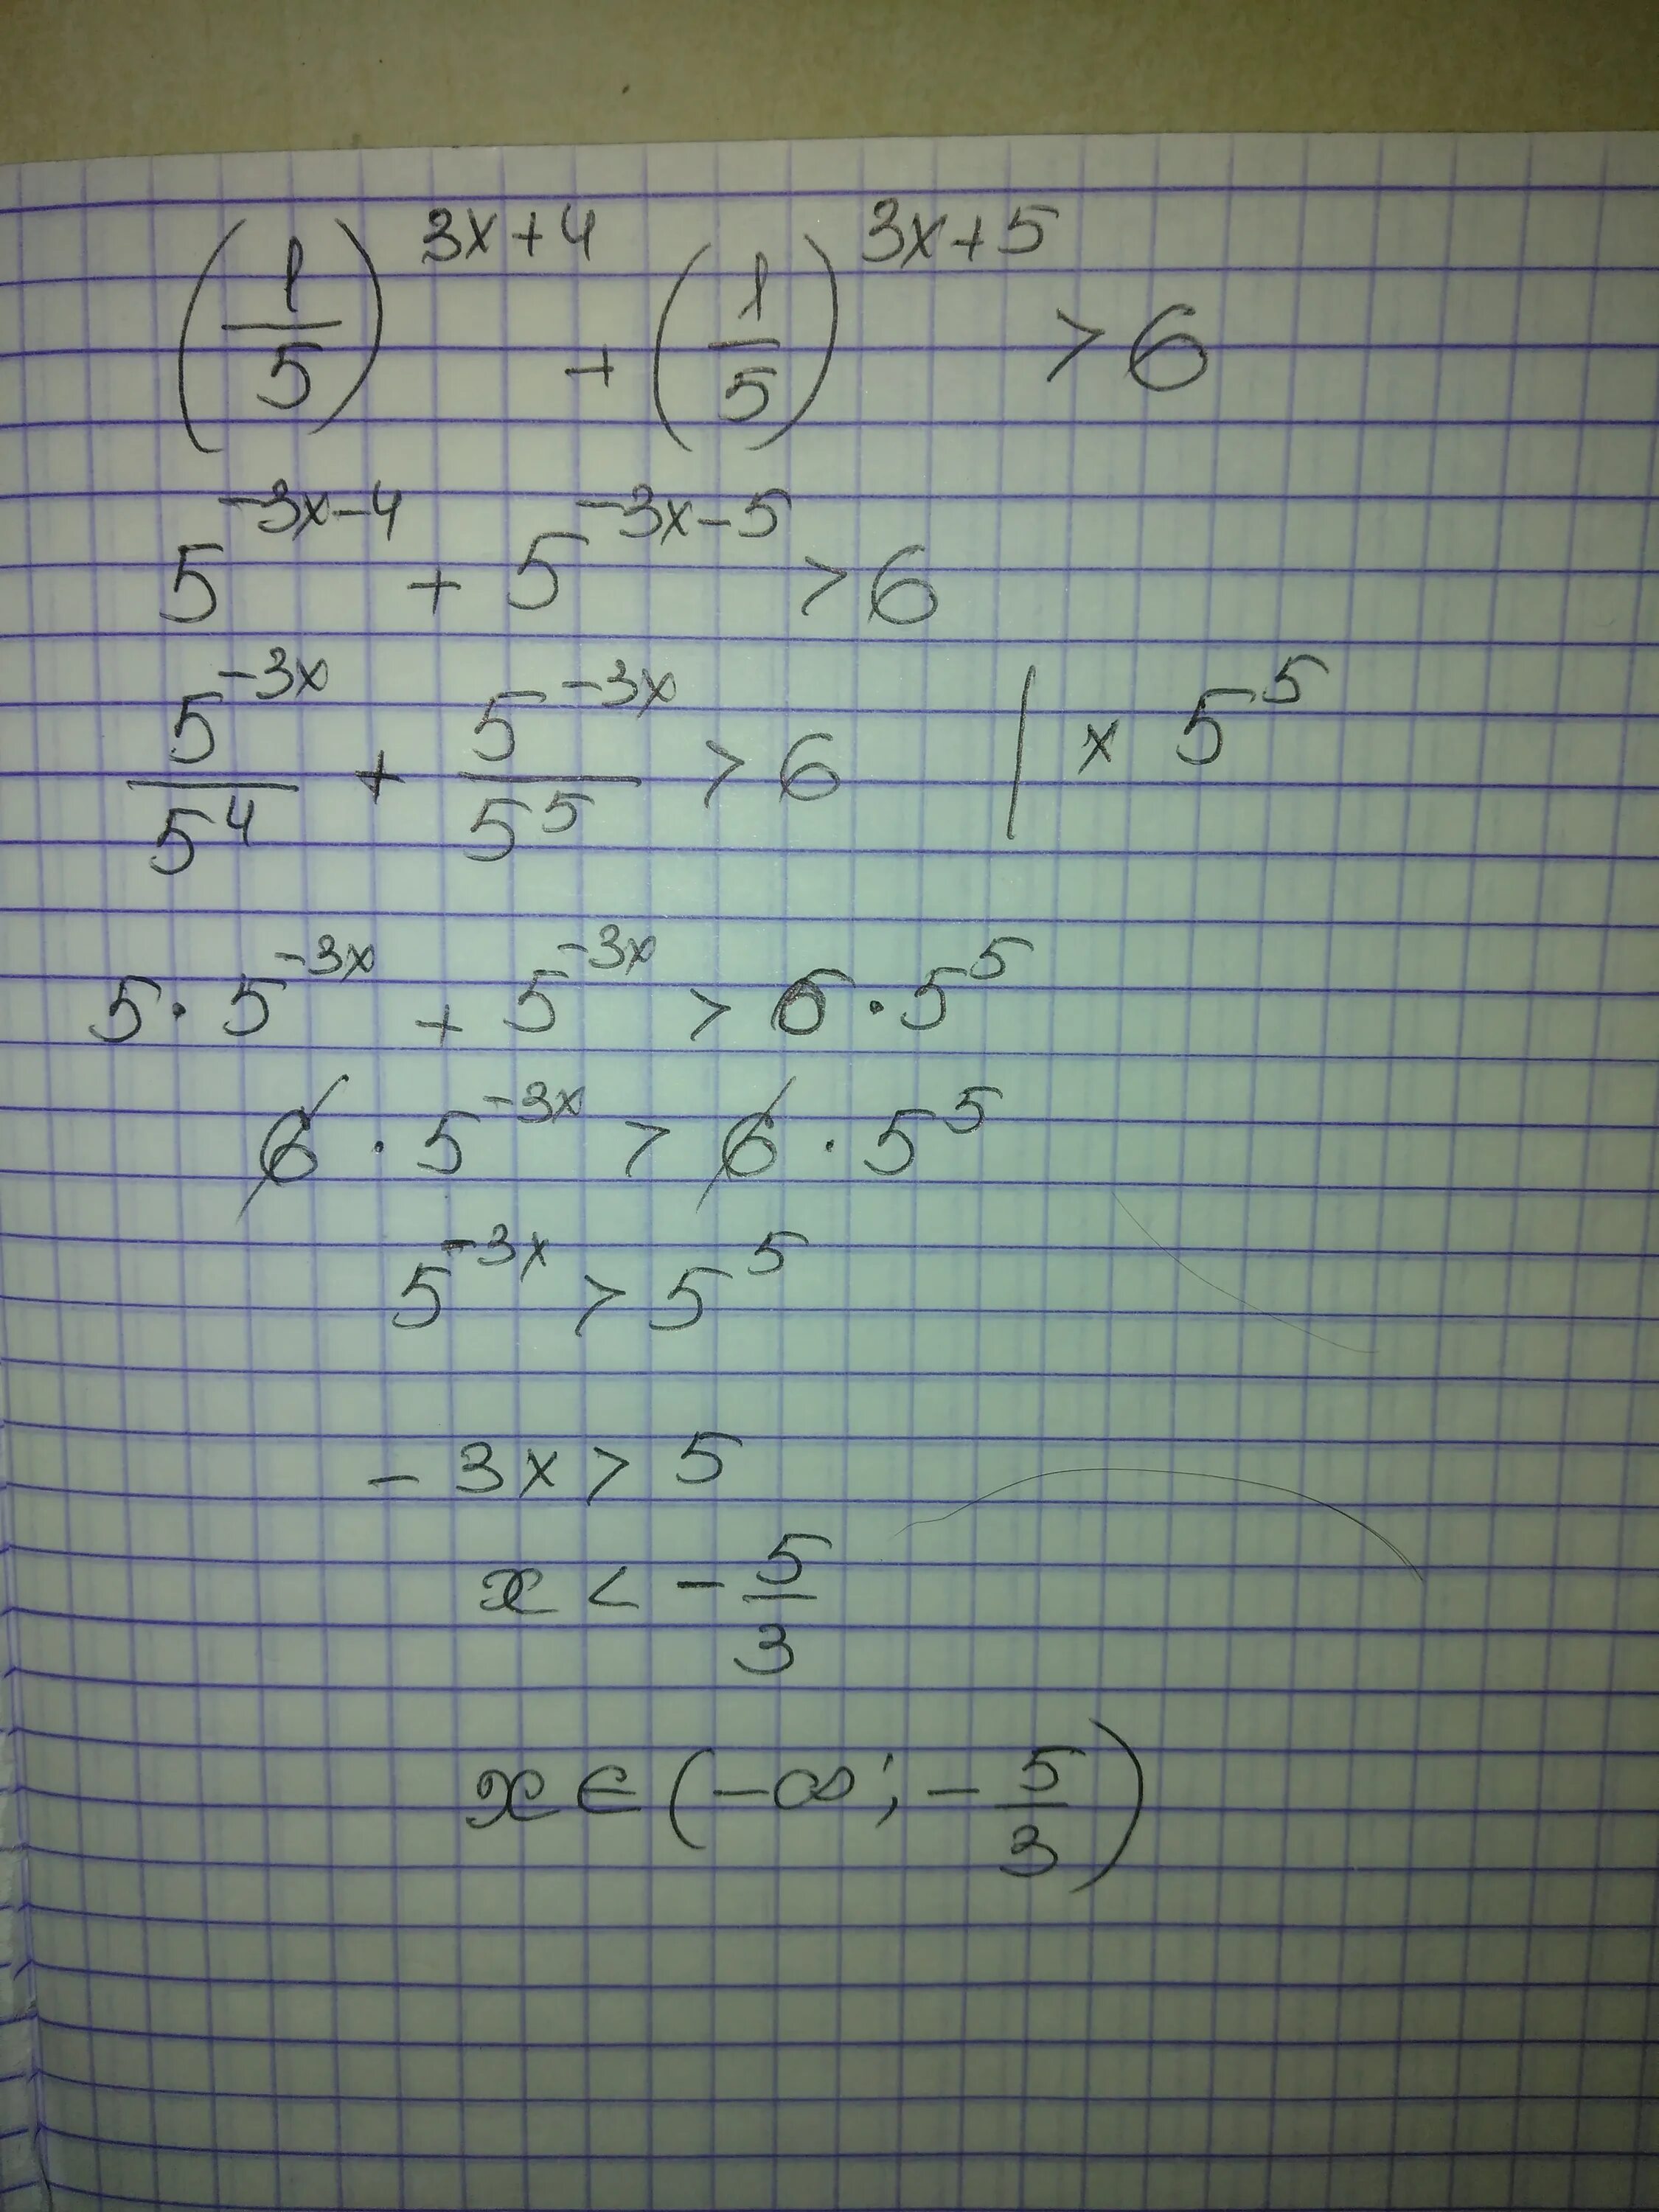 (1/5)^(3x+4) + (1/5)^(3x+5) > 6
5^(-3x-4) + 5^(-3x-5) > 6
5^(-3x)/5^4 + 5^(-3x)/5^5 > 6 | × 5^5
5 · 5^(-3x) + 5^(-3x) > 6 · 5^5
6 · 5^(-3x) > 6 · 5^5
5^(-3x) > 5^5
- 3x > 5
x < - 5/3
x ∈ (-∞; - 5/3)